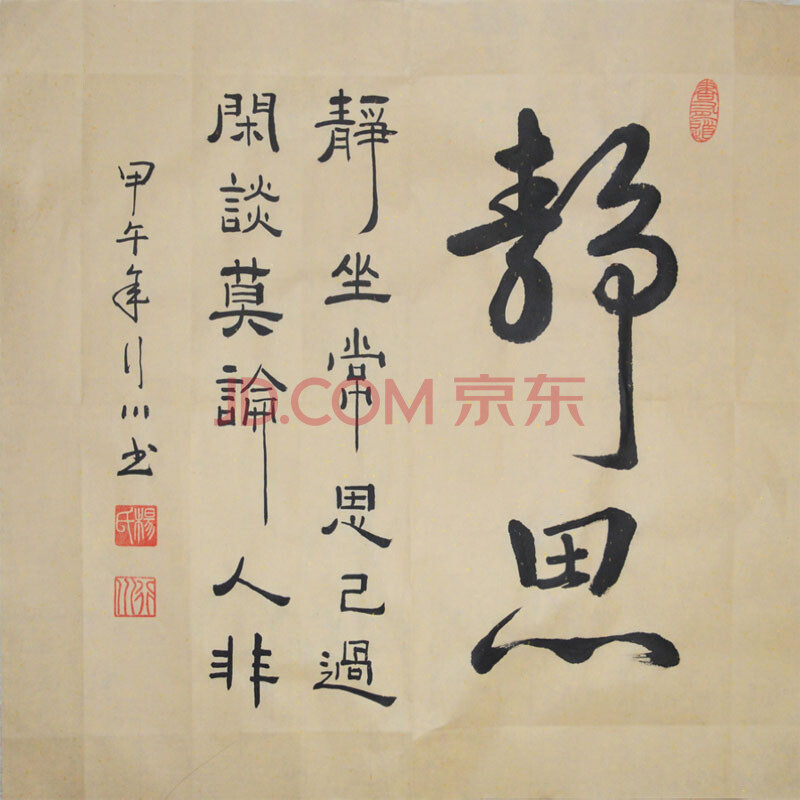 靜思
靜坐常思己過
閑談莫論人非
甲午年行川书
楊氏
行川
JD.COM 京东